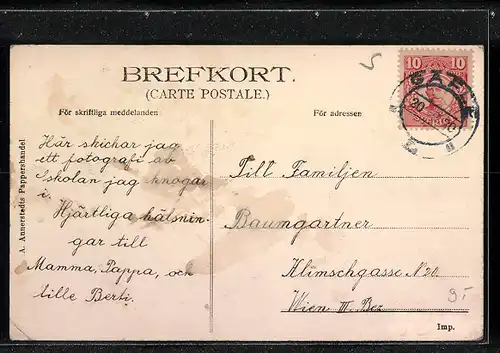 BREFKORT.
(CARTE POSTALE.)
För skriftliga meddelanden
För adressen
Här skickar jag
ett fotografi av
skolan jag knogar
i.
Hjärtliga hälsnin-
gar till
Mamma, Pappa, och
lille Berti.
Till Familjen
Baumgartner
Klimschgasse N 20.
Wien III. Bez
A. Annerstedts Pappershandel
Imp.
10 10
GÄFLE
20